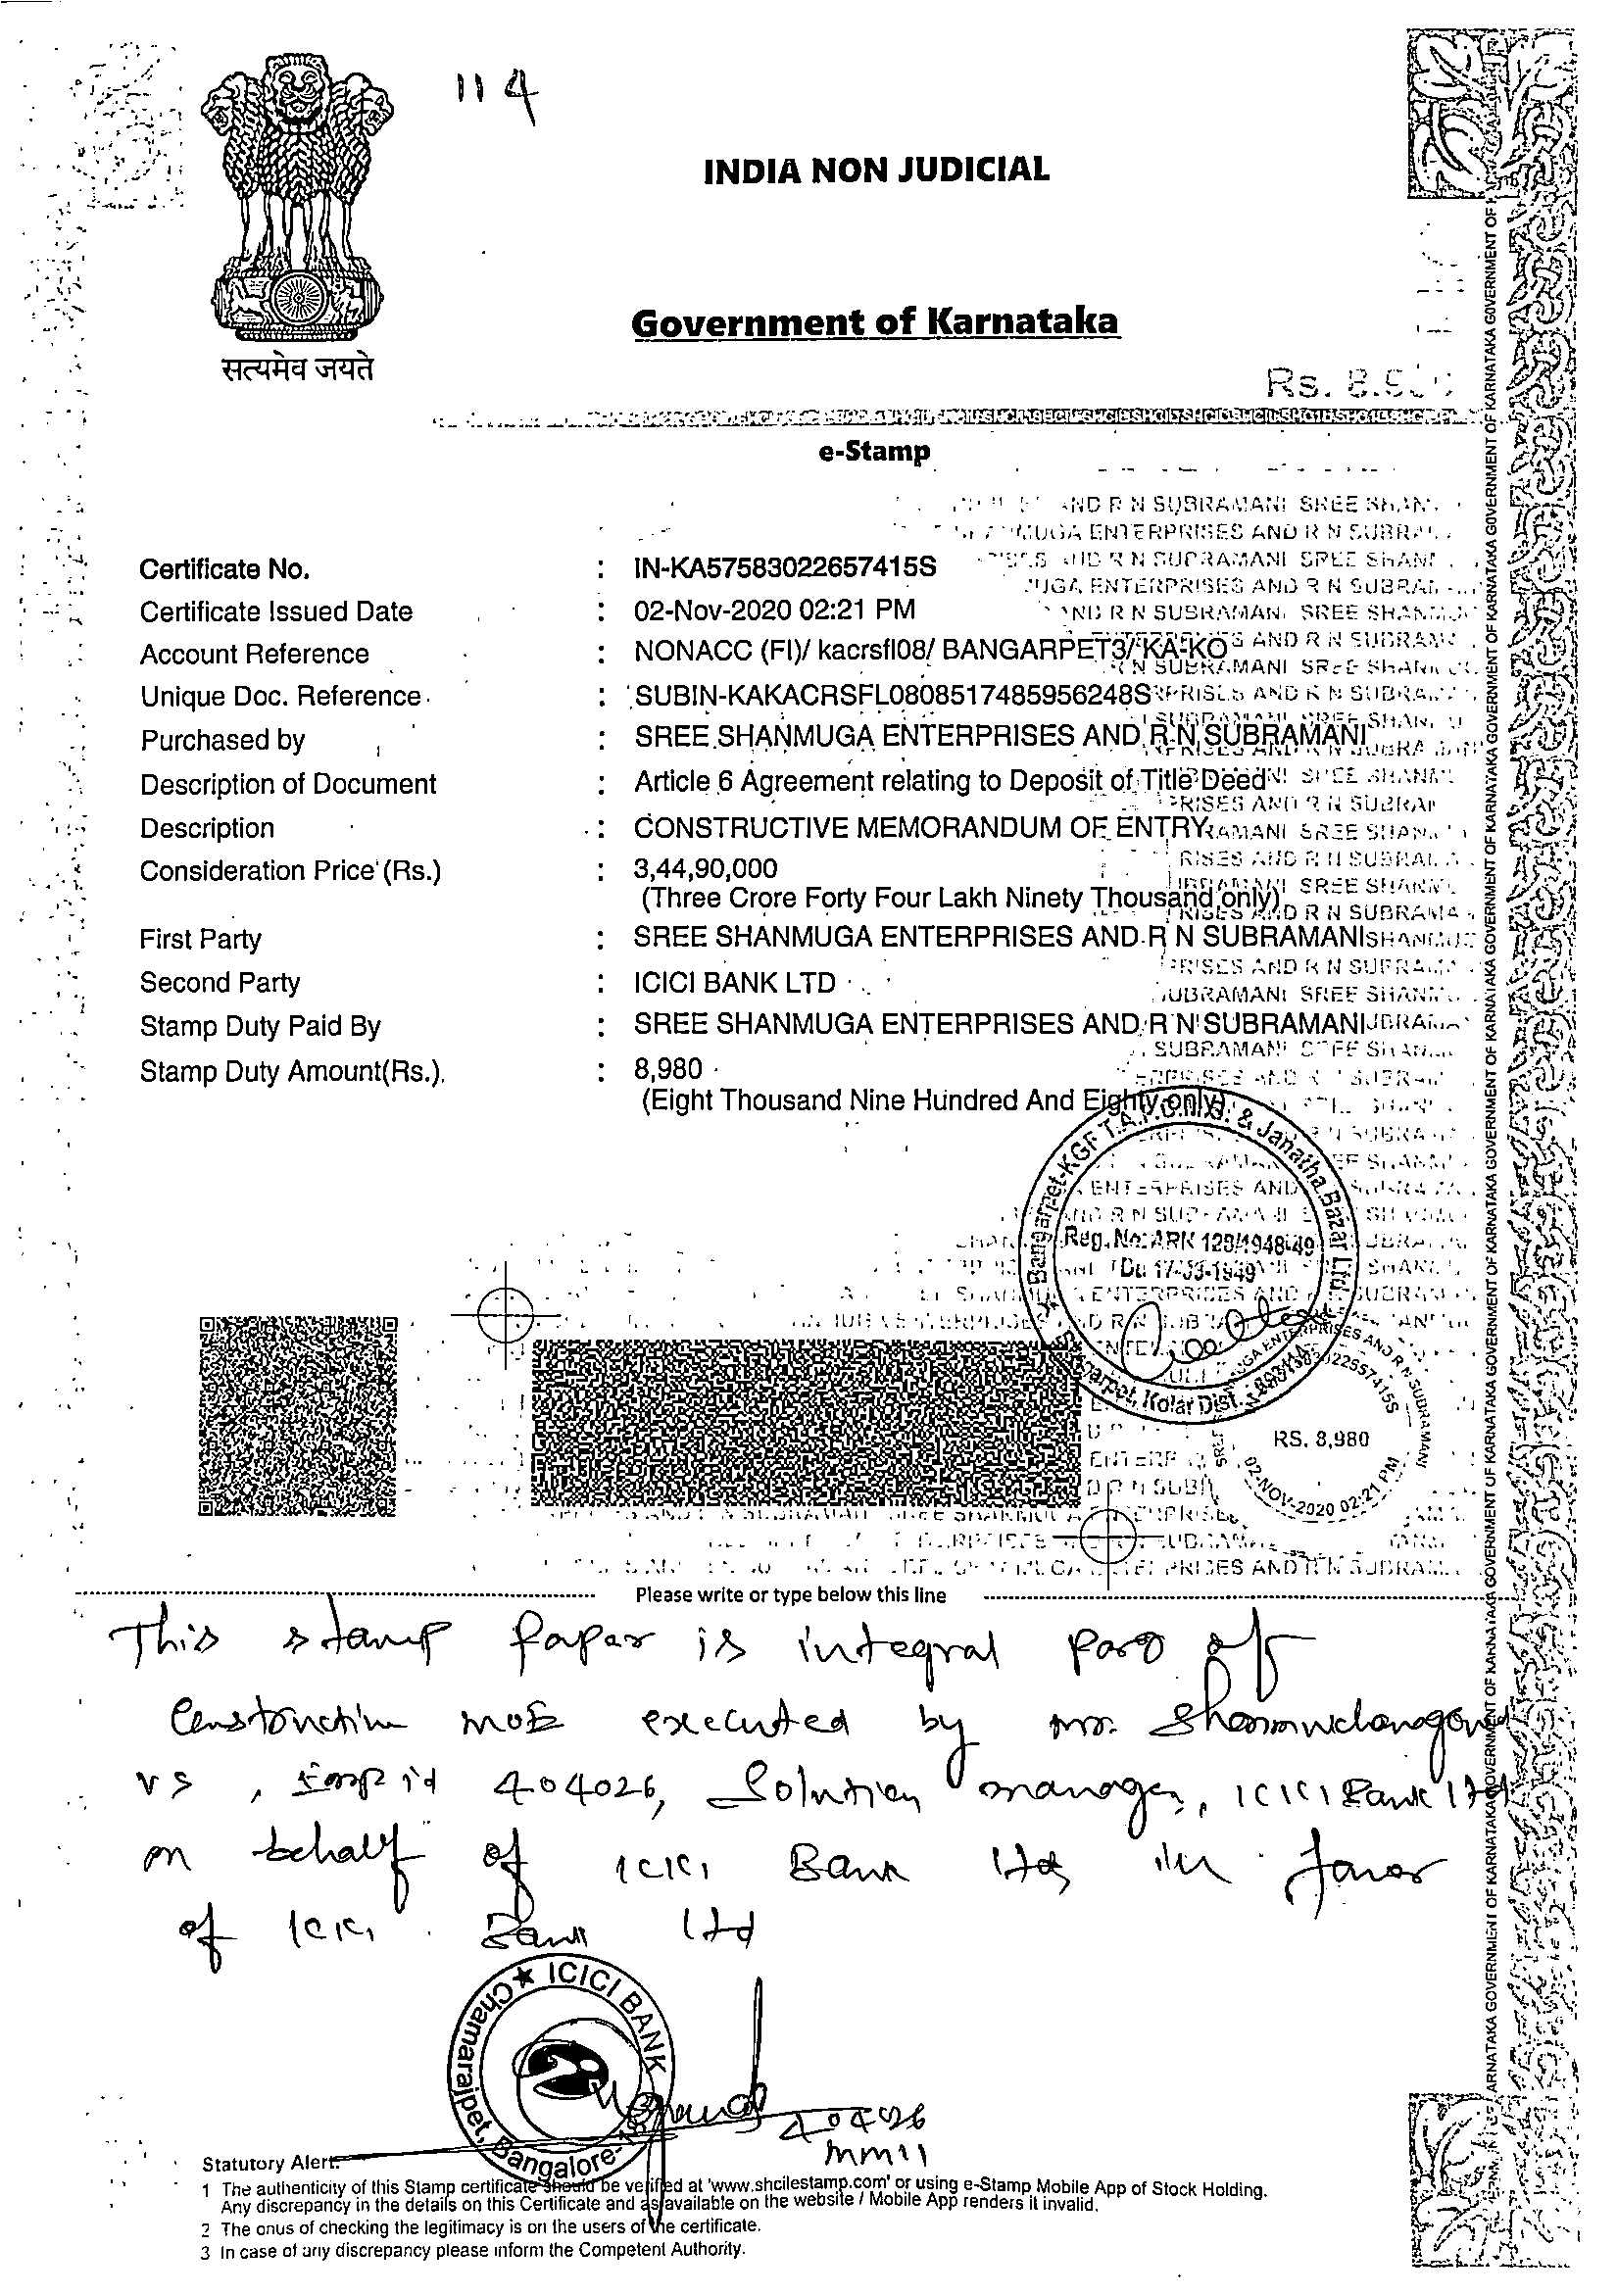 114
INDIA NON JUDICIAL
Government of Karnataka
सत्यमेव जयते
Rs. 8,980
e-Stamp
Certificate No. : IN-KA57583022657415S
Certificate Issued Date : 02-Nov-2020 02:21 PM
Account Reference : NONACC (FI)/ kacrsfl08/ BANGARPET3/ KA-KO
Unique Doc. Reference : SUBIN-KAKACRSFL0808517485956248S
Purchased by : SREE SHANMUGA ENTERPRISES AND R N SUBRAMANI
Description of Document : Article 6 Agreement relating to Deposit of Title Deed
Description : CONSTRUCTIVE MEMORANDUM OF ENTRY
Consideration Price (Rs.) : 3,44,90,000
(Three Crore Forty Four Lakh Ninety Thousand only)
First Party : SREE SHANMUGA ENTERPRISES AND R N SUBRAMANI
Second Party : ICICI BANK LTD
Stamp Duty Paid By : SREE SHANMUGA ENTERPRISES AND R N SUBRAMANI
Stamp Duty Amount(Rs.) : 8,980
(Eight Thousand Nine Hundred And Eighty only)
Bangarpet-KGF T.A.P.C.M.S. & Janatha Bazar Ltd.
Reg. No: ARK 128/1948-49
Bangarpet, Kolar Dist.
RS. 8,980
02-NOV-2020 02:21 PM
Please write or type below this line
This stamp paper is integral part of
Constructive MOE executed by Mr.
VS, Emp id 404026, Solution manager, ICICI Bank Ltd
on behalf of ICICI Bank Ltd in favor
of ICICI Bank Ltd
ICICI BANK
Chamarajpet, Bangalore-18
404026
MM11
Statutory Alert:
1 The authenticity of this Stamp certificate should be verified at 'www.shcilestamp.com' or using e-Stamp Mobile App of Stock Holding.
Any discrepancy in the details on this Certificate and as available on the website / Mobile App renders it invalid.
2 The onus of checking the legitimacy is on the users of the certificate.
3 In case of any discrepancy please inform the Competent Authority.